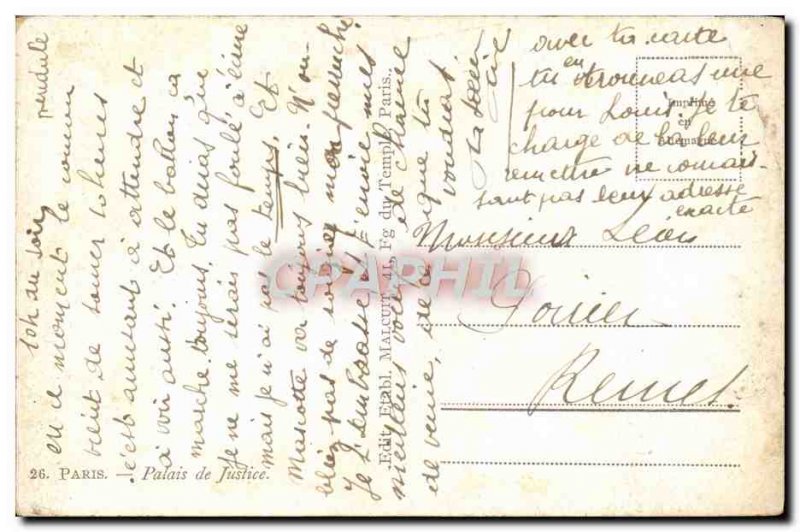 10h du soir
en ce moment le coucou pendule
vient de sonner 10 heures
c'est amusant à attendre et
à voir aussi. Et le ballon ça
marche toujours. Tu diras que
je ne me serais pas foulé à écrire
mais je n'ai pas le temps. Et
Mascotte va toujours bien. N'ou-
bliez pas de soigner mon perruche
Je t'embrasse et t'envoie mes
meilleurs voeux de
de venir, de ce que tu
voudras
ta soeur
avec ta carte
tu en trouveras une
pour Louis. Je te
charge de la leur
remettre ne connais-
sant pas leur adresse
exacte
Imprimé
en
Allemagne
Monsieur Léon
Poirier
Remet.
CPARHIL
Edit. Etabl. MALCUIT, 41, Fg du Temple, Paris.
26. PARIS. — Palais de Justice.